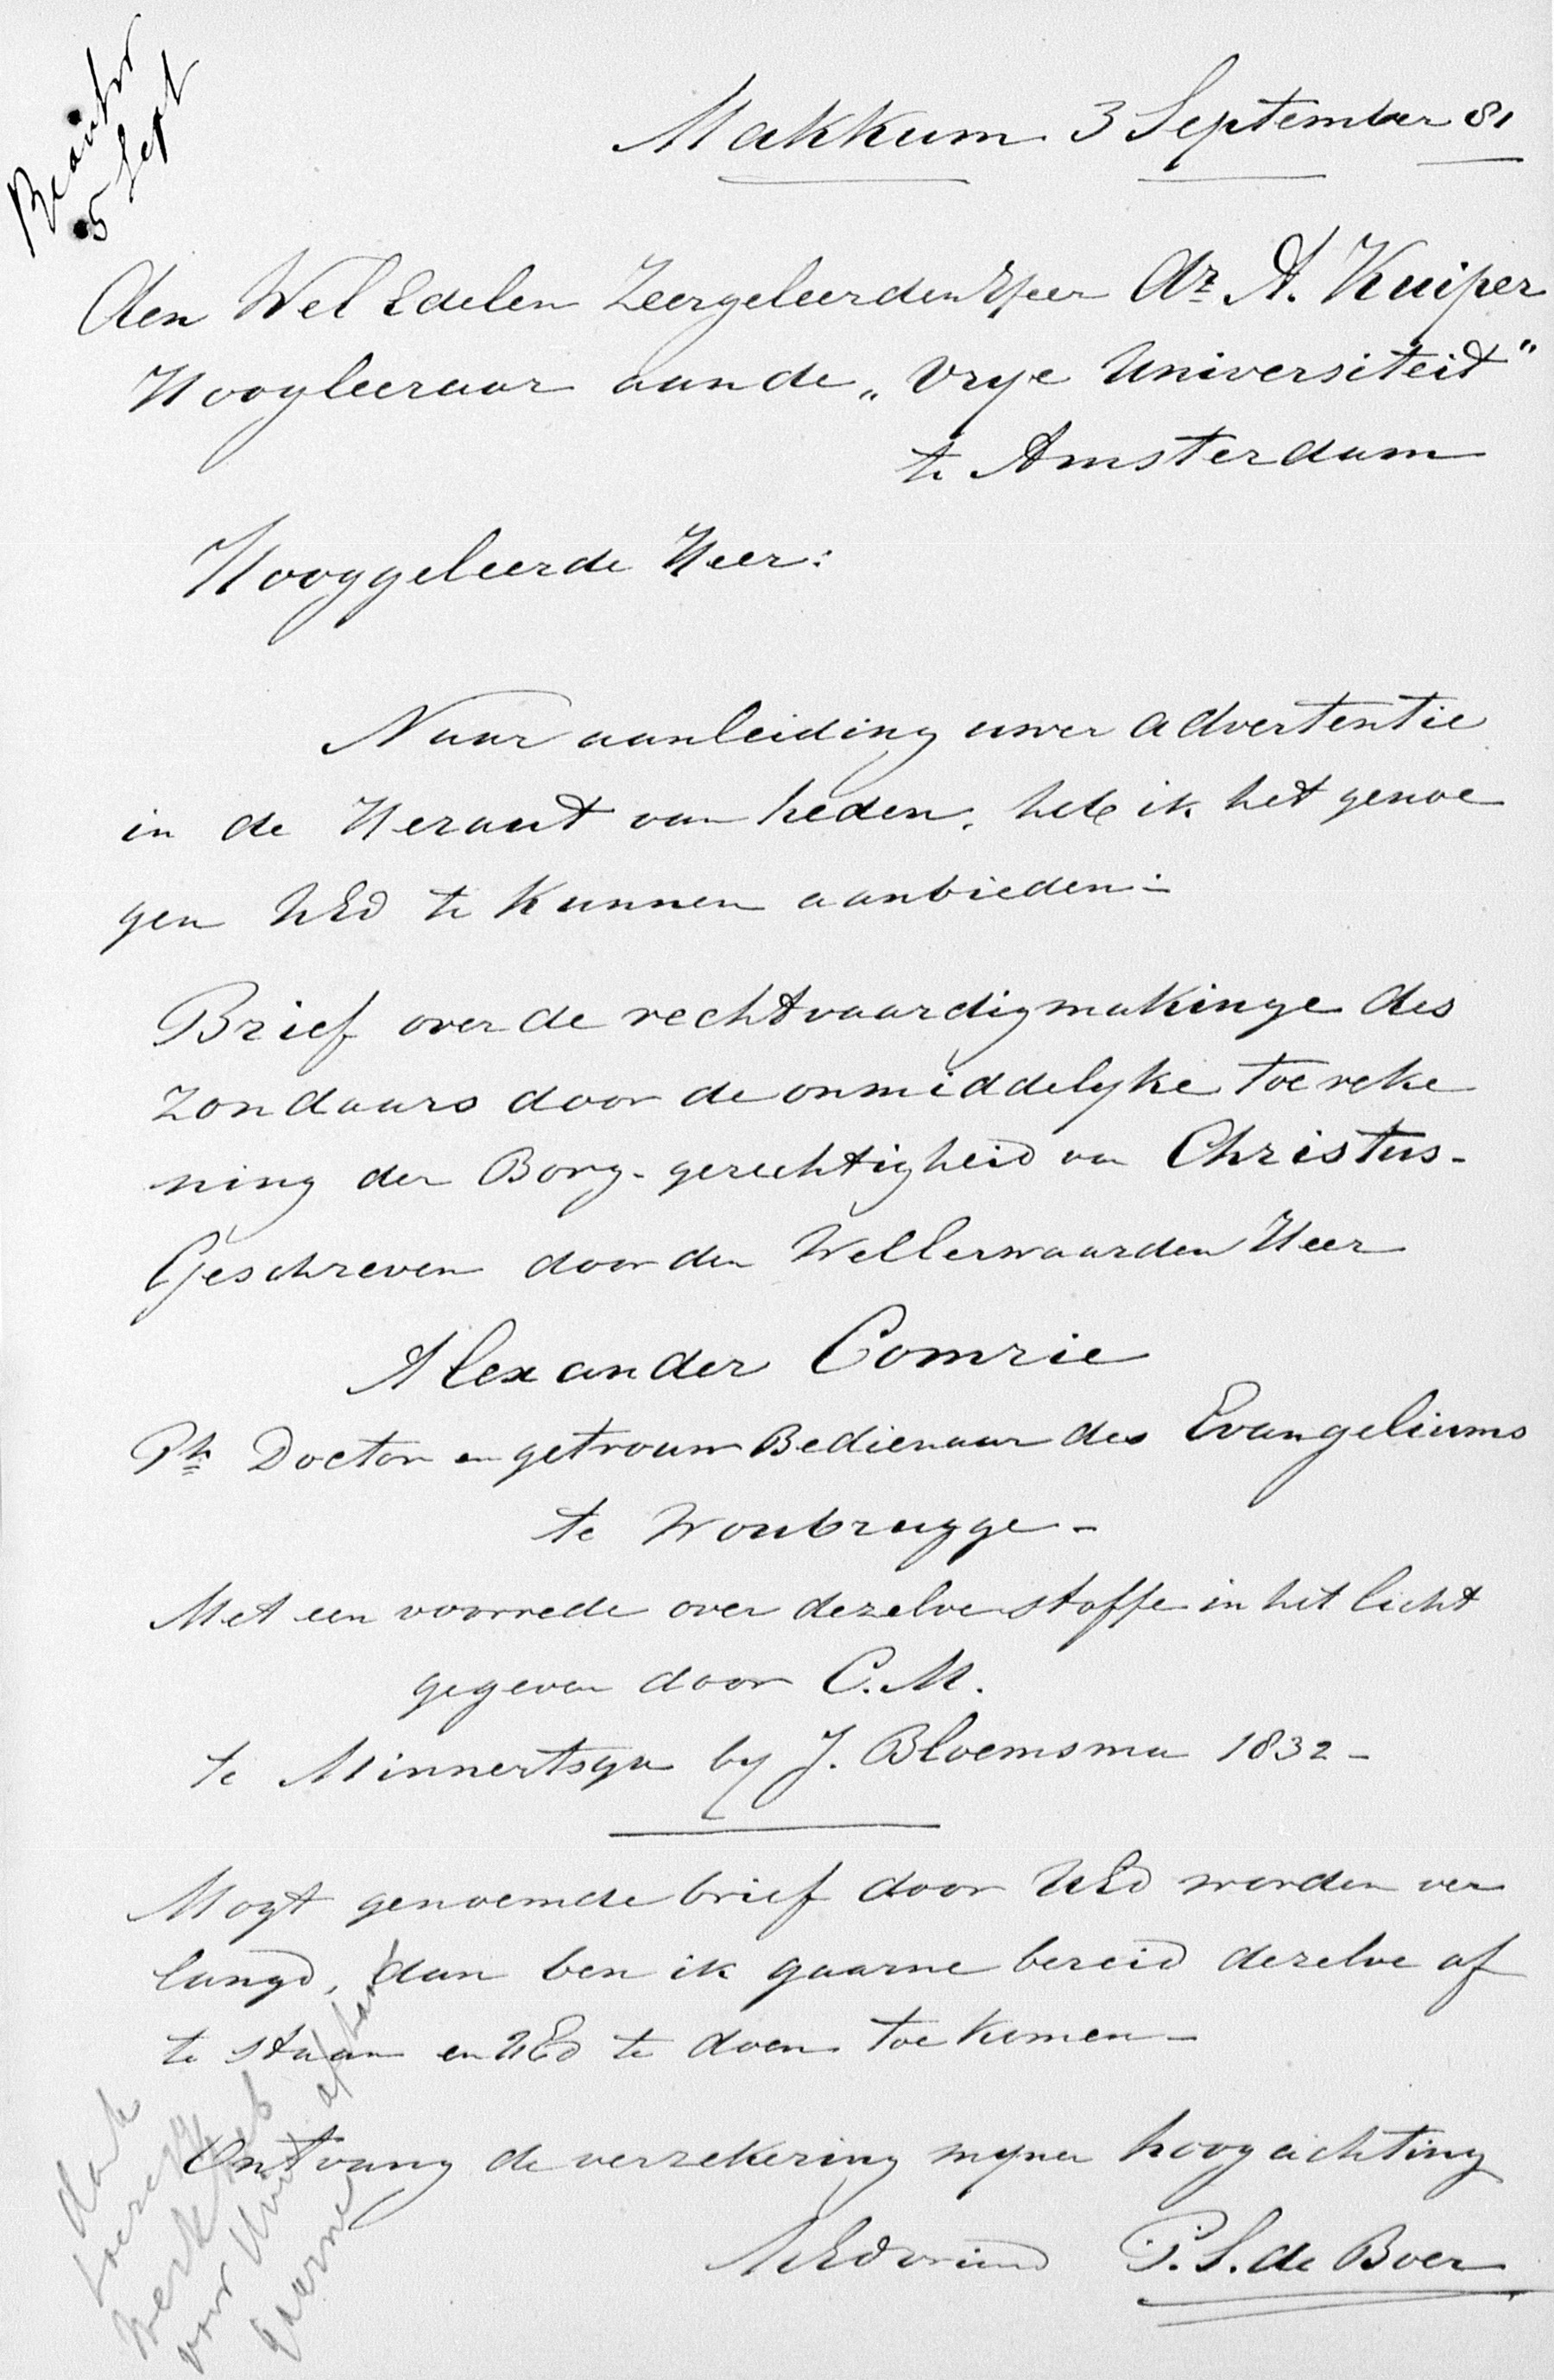 Beantw
5 Sept
Makkum 3 September 81
den Wel Edelen Zeergeleerden Heer Dr. A. Kuiper
Hoogleeraar aan de „Vrye Universiteit"
te Amsterdam
Hooggeleerde Heer:
Naar aanleiding uwer advertentie
in de Heraut van heden, heb ik het genoe
gen UEd te kunnen aanbieden:-
Brief over de rechtvaardigmakinge des
zondaars door de onmiddelyke toereke
ning der Borg-gerechtigheid van Christus-
Geschreven door den WelEerwaarden Heer
Alexander Comrie
Ph Doctor en getrouw Bedienaar des Evangeliums
te Woubrugge-
Met een voorrede over dezelve stoffe in het licht
gegeven door C.M.
te Minnertsga by J. Bloemsma 1832-
Mogt genoemde brief door UEd worden ver
langd, dan ben ik gaarne bereid dezelve af
te staan en UEd te doen toekomen-
Ontvang de verzekering myner hoogachting
UEd vriend P.S. de Boer
dank
werk heb
voor
gaarne